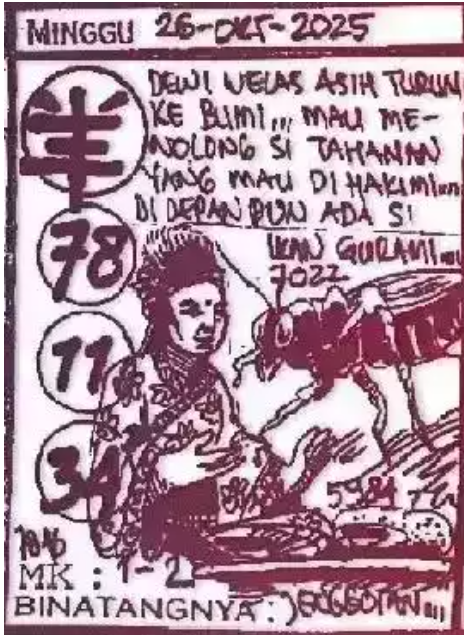 MINGGU 26-OKT-2025
DEWI WELAS ASIH TURUN
KE BUMI,,, MAU ME-
NOLONG SI TAHANAN
YANG MAU DI HAKIMI,,,
DI DEPAN PUN ADA SI
IKAN GURAMI,,,
7022
羊
78
11
34
5984
MK : 1-2
BINATANGNYA : JENGGOTAN,,,